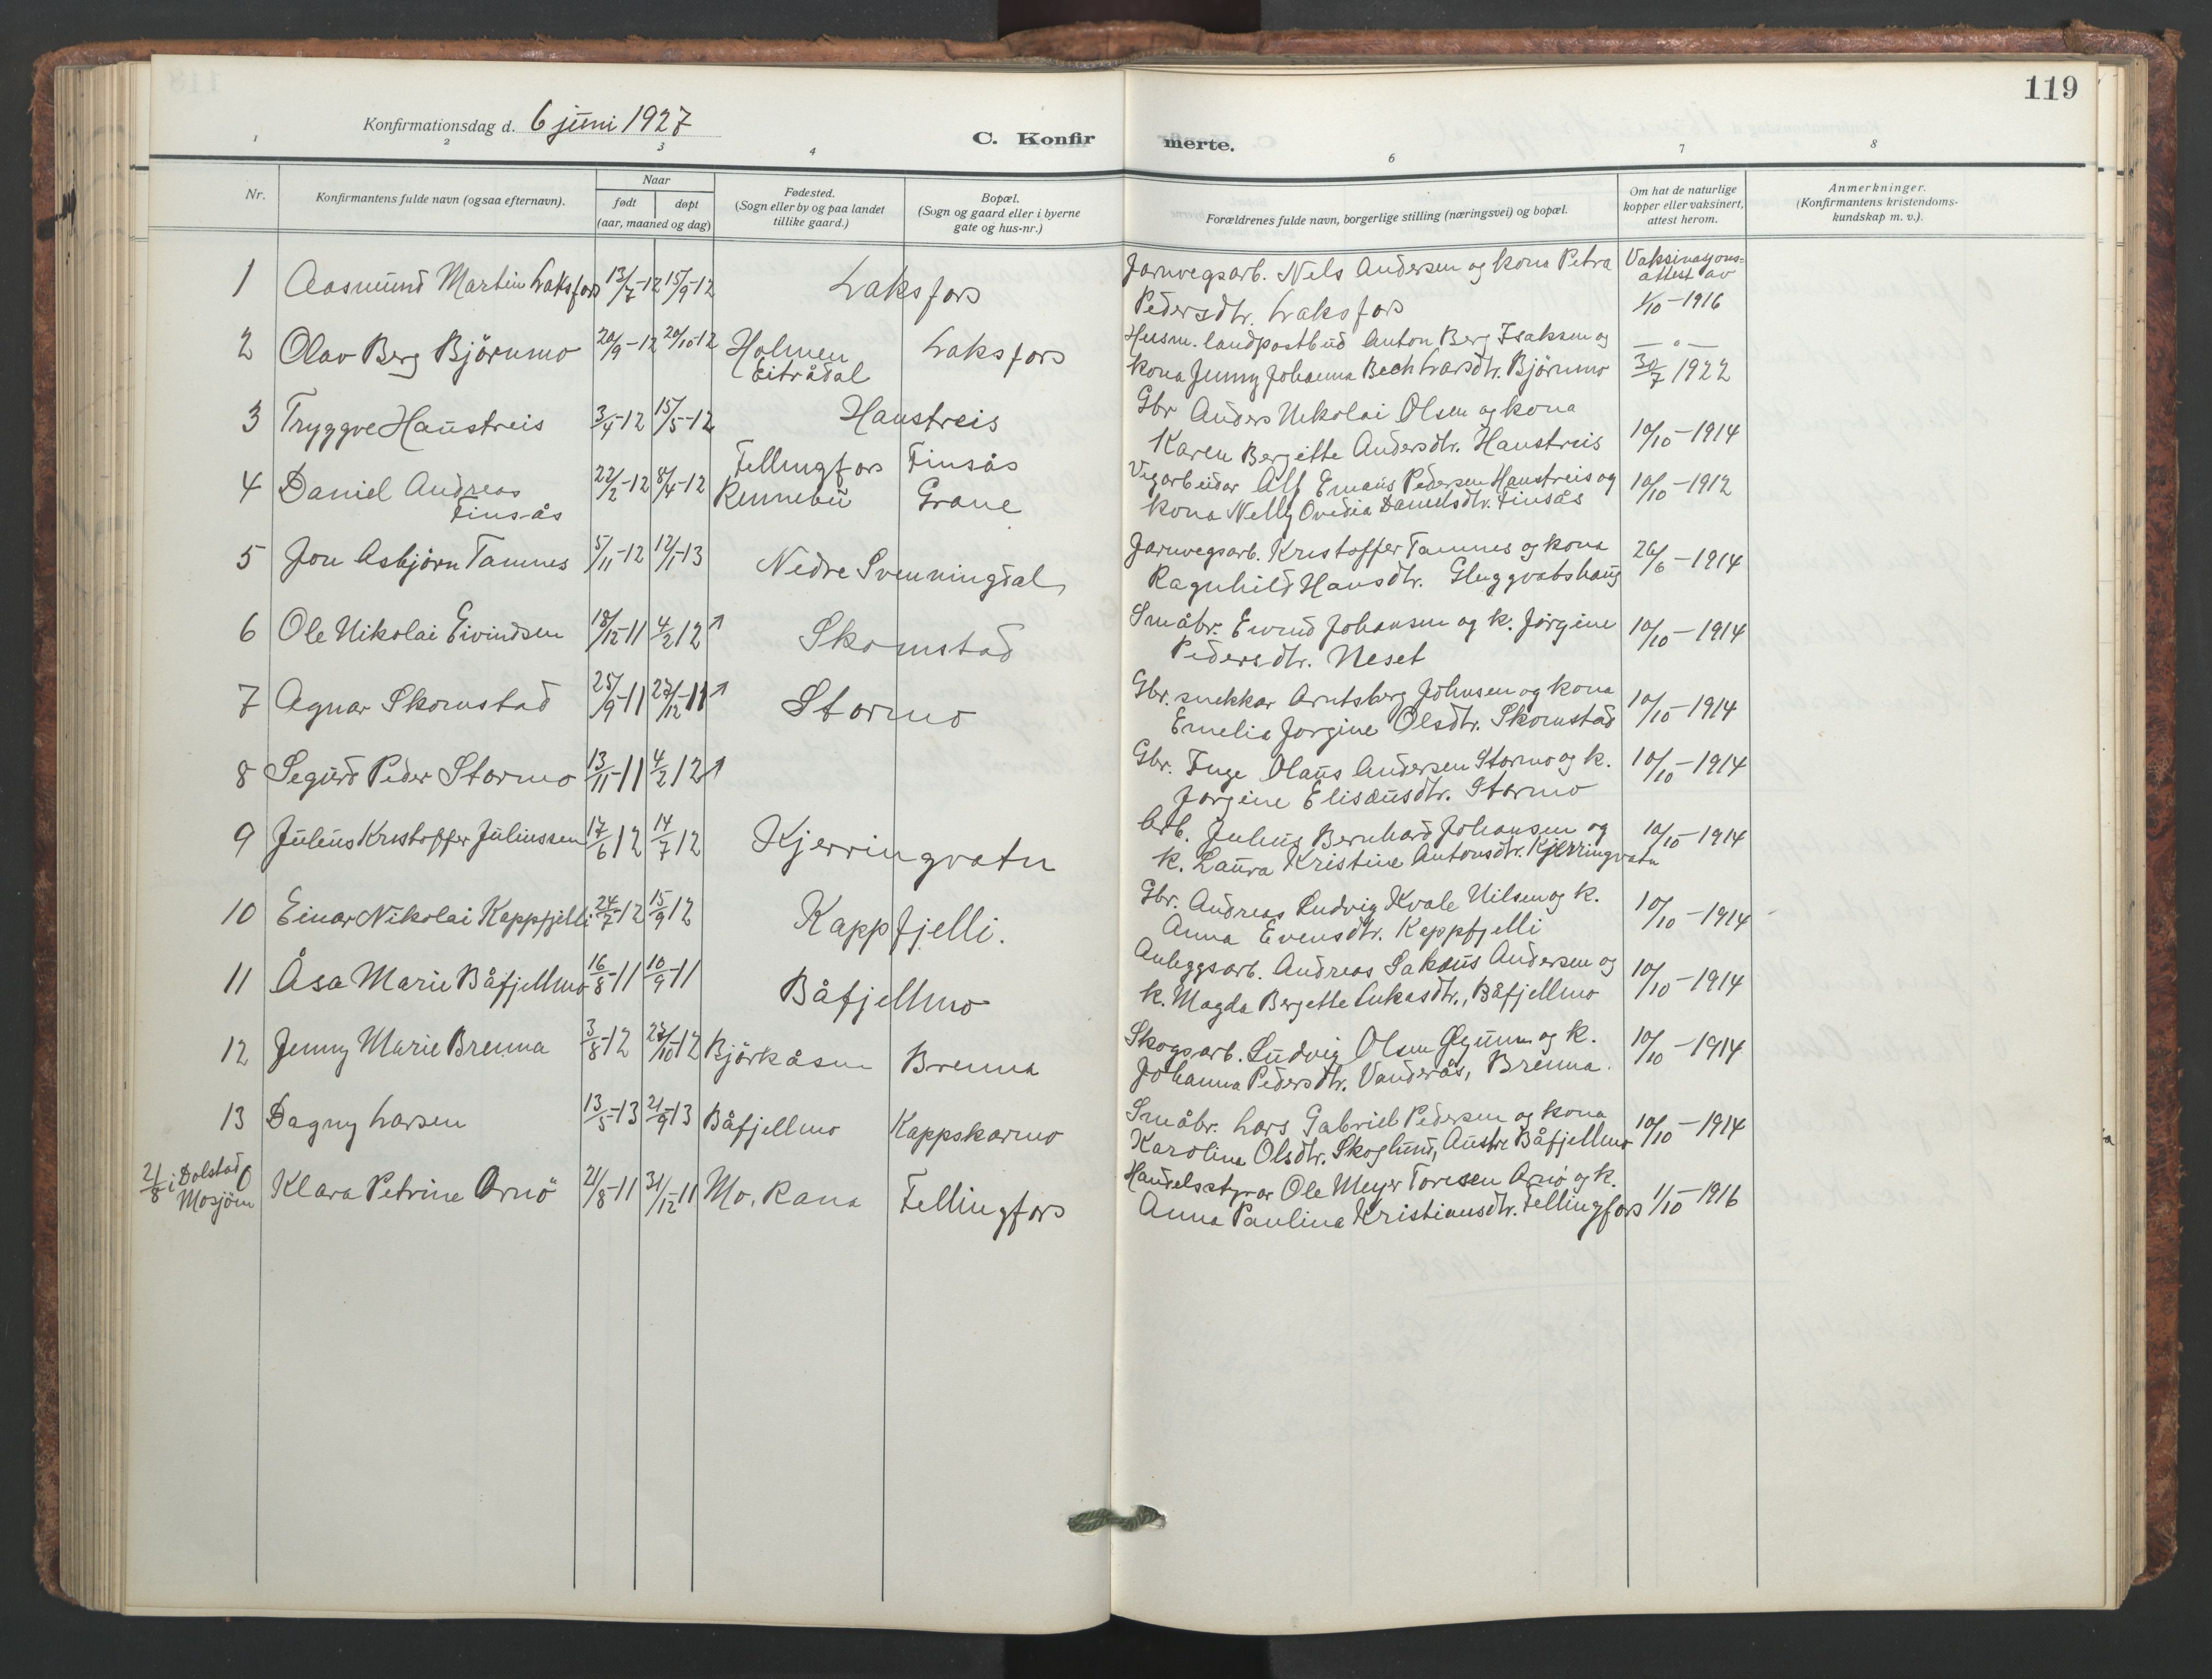 119
Konfirmationsdag d. 6 juni 1927
C. Konfirmerte.
1 2 3 4 6 7 8
Nr.
Konfirmantens fulde navn (ogsaa efternavn).
Naar
født døpt
(aar, maaned og dag)
Fødested.
(Sogn eller by og paa landet
tillike gaard.)
Bopæl.
(Sogn og gaard eller i byerne
gate og hus-nr.)
Forældrenes fulde navn, borgerlige stilling (næringsvei) og bopæl.
Om hat de naturlige
kopper eller vaksinert,
attest herom.
Anmerkninger.
(Konfirmantens kristendoms-
kundskap m. v.).
1 Aasmund Martin Laksfors 13/7-12 15/9-12 Laksfors Jarnvegsarb. Nels Andersen og kona Petra
Pedersdtr. Laksfors
Vaksinasjons-
attest av
1/10-1916
2 Olav Berg Björumo 20/9-12 20/10-12 Holmen
Eitrådal
Laksfors
Husm. landpostbud Anton Berg Isaksen og
kona Jenny Johanna Bech Larsdtr. Björumo
— " —
30/7 1922
3 Tryggve Haustreis 3/4-12 15/5-12 Haustreis
Gbr Anders Nikolai Olsen og kona
Karen Bergitte Andersdtr. Haustreis
10/10-1914
4 Daniel Andreas
Finsås
22/2-12 8/4-12 Fellingfors
Rennebu
Finsås
Grane
Vegarbeidar Alf Emaus Pedersen Haustreis og
kona Nelly Ovedia Danielsdtr. Finsås
10/10-1912
5 Jon Asbjørn Tamnes 5/11-12 12/1-13 Nedre Svenningdal
Jarnvegsarb. Kristoffer Tamnes og kona
Ragnhild Hansdtr. Gluggvatshaug
26/6-1914
6 Ole Nikolai Eivindsen 18/12-11 4/2 12 ↑ Skomstad
Småbr. Eivind Johansen og k. Jørgine
Pedersdtr. Neset
10/10-1914
7 Agnar Skomstad 25/9-11 27/12-11 ↑ Stormo
Gbr. snekkar Arntsberg Johnsen og kona
Emelia Jorgine Olsdtr. Skomstad
10/10-1914
8 Segurd Peder Stormo 13/11-11 4/2 12 ↑
Gbr. Inge Olaus Andersen Stormo og k.
Jorgine Elisæusdtr. Stormo
10/10-1914
9 Julius Kristoffer Juliussen 17/6 12 14/7 12 Kjerringvatn
Arb. Julius Bernhard Johansen og
k. Laura Kristine Antonsdtr. Kjerringvatn
10/10-1914
10 Einar Nikolai Kappfjelli 24/7-12 15/9 12 Kappfjelli.
Gbr. Andreas Ludvig Kvale Nilsen og k.
Anna Evensdtr. Kappfjelli
10/10-1914
11 Åsa Marie Båfjellmo 16/8-11 10/9-11 Båfjellmo
Anleggsarb. Andreas Sakæus Andersen og
k. Magda Bergette Lukasdtr., Båfjellmo
10/10-1914
12 Jenny Marie Brenna 3/8-12 27/10-12 Björkåsen Brenna
Skogsarb. Ludvig Olsen og k.
Johanna Pedersdtr. Vanderås, Brenna.
10/10-1914
13 Dagny Larsen 13/5-13 21/9-13 Båfjellmo Kappskarmo
Småbr. Lars Gabriel Pedersen og kona
Karolina Olsdtr. Skoglund, Austre Båfjellmo
10/10-1914
21/8 i Dolstad
Mosjöen
0 Klara Petrine Ornö 21/8-11 31/12-11 Mo, Rana Fellingfors
Handelsstyrar Ole Meyer Toresen Arnö og k.
Anna Paulina Kristiansdtr. Fellingfors
1/10-1916